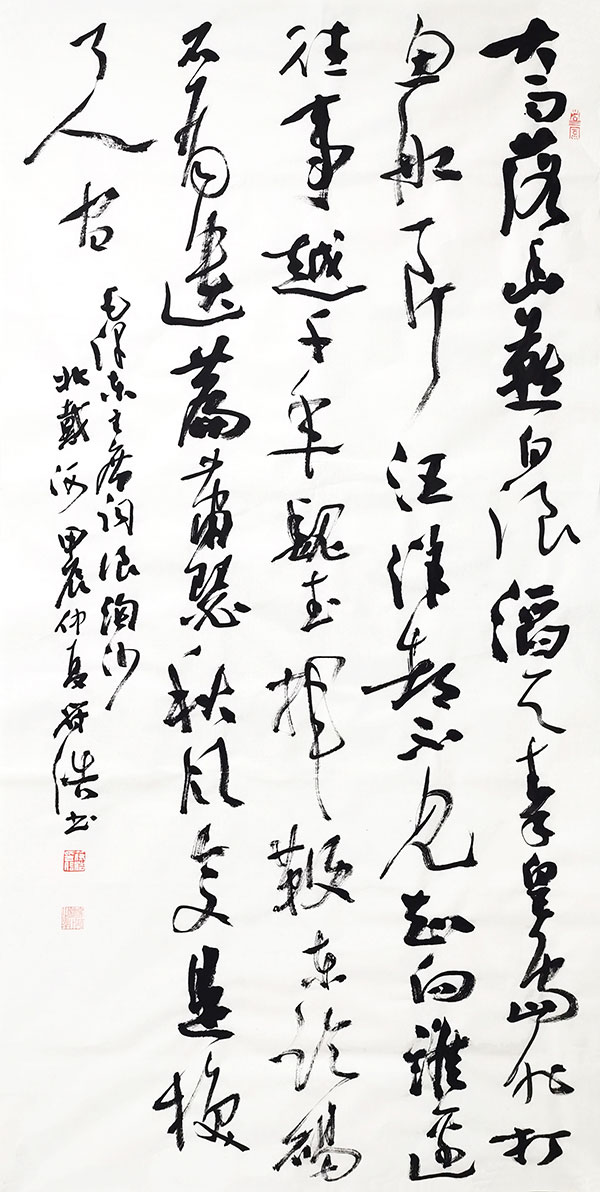 大雨落幽燕白浪滔天秦皇岛外打
鱼船一片汪洋都不见知向谁边
往事越千年魏武挥鞭东临碣
石有遗篇萧瑟秋风今又是换
了人间
毛泽东主席词浪淘沙
北戴河 甲辰仲夏 浩书